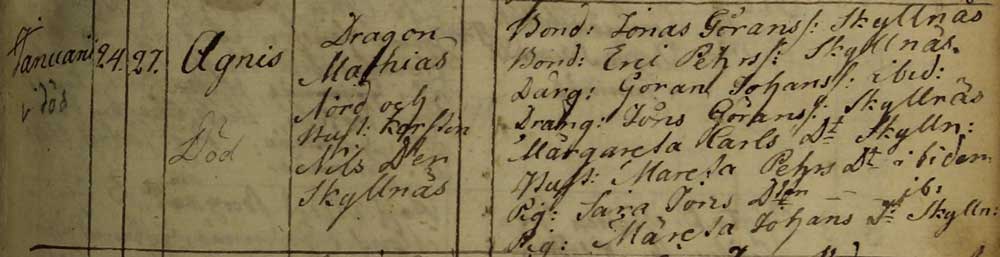 Januarii 24. 27. Agnis
död
Död
Dragon
Mathias
Nord och
Hust: Karsten
Nils Dter
Skyllnäs
Bond: Jonas Görans s: Skyllnäs
Bond: Eric Pehrs s: Skyllnäs.
Dräng: Göran Johans s: ibid:
Dräng: Jöns Görans s: Skyllnäs
Margareta Carls Dt Skylln:
Hust: Mareta Pehrs Dt ibidem
Pig: Sara Jöns Dter — ib:
Pig: Märeta Johans Dt: Skylln: